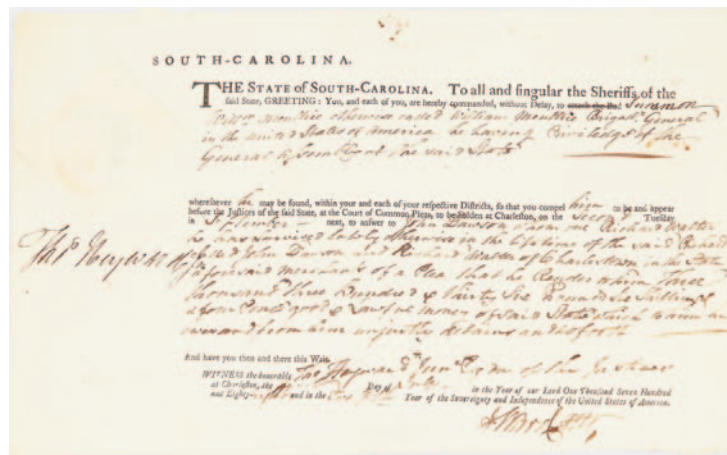 SOUTH-CAROLINA.
THE STATE of SOUTH-CAROLINA. To all and singular the Sheriffs of the
said State, GREETING: You, and each of you, are hereby commanded, without Delay, to attach the Body Summon
William Moultrie otherwise called William Moultrie Brigadr. General
in the United States of America he having Priviledge of the
General Court the said State
wheresoever he may be found, within your and each of your respective Districts, so that you compel him to be and appear
before the Justices of the said State, at the Court of Common Pleas, to be holden at Charleston, on the Second Tuesday
in September next, to answer to John Dawson whom one Richard Walter
he has survived lately otherwise in the lifetime of the said Richard
called John Dawson and Richard Walter of Charlestown in the State
aforesaid merchants of a Plea that he Render to him Three
Thousand three hundred & thirty Six Pounds Six Shillings
& four Pence good & Lawful money of said State which to him
owes and from him unjustly detains and so forth
And have you then and there this Writ.
WITNESS the honorable Thos Heyward Junr. Esqr. one of the Justices
at Charleston, the Day of in the Year of our Lord One Thousand Seven Hundred
and Eighty-eight and in the Year of the Sovereignty and Independence of the United States of America.
Thos Heyward Jr